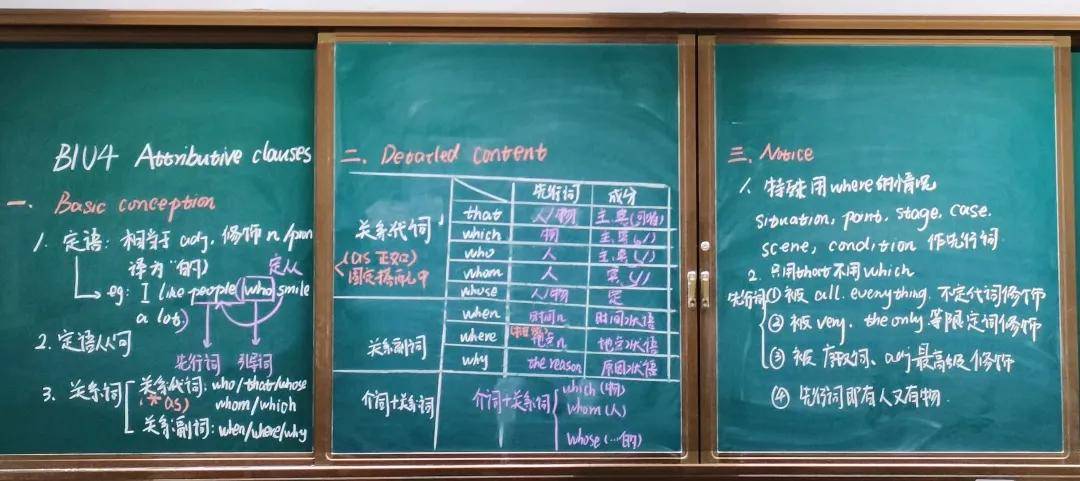 B1U4 Attributive clauses
一. Basic conception
1. 定语: 相当于 adj. 修饰 n/pron
译为 "的)
定从
eg: I like people (who) smile
a lot.
2. 定语从句
先行词 引导词
3. 关系词
关系代词: who/that/whose
(* as) whom/which
关系副词: when/where/why
二. Detailed content
先行词 成分
关系代词
(as 正如)
固定搭配中
that 人/物 主.宾(可省)
which 物 主.宾(〃)
who 人 主.宾(〃)
whom 人 宾.(〃)
whose 人/物 定
关系副词
when 时间n 时间状语
where 地点n 地点状语
why the reason 原因状语
介词+关系词
介词+关系词
which (物)
whom (人)
whose (…的)
三. Notice
1. 特殊用where的情况
situation, point, stage, case.
scene, condition 作先行词.
2. 只用that不用which
先行词
① 被 all. everything. 不定代词修饰
② 被 very, the only 等限定词修饰
③ 被 序数词、adj最高级修饰
④ 先行词即有人又有物.